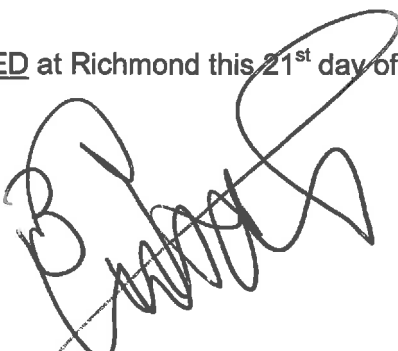 ED at Richmond this 21st day of